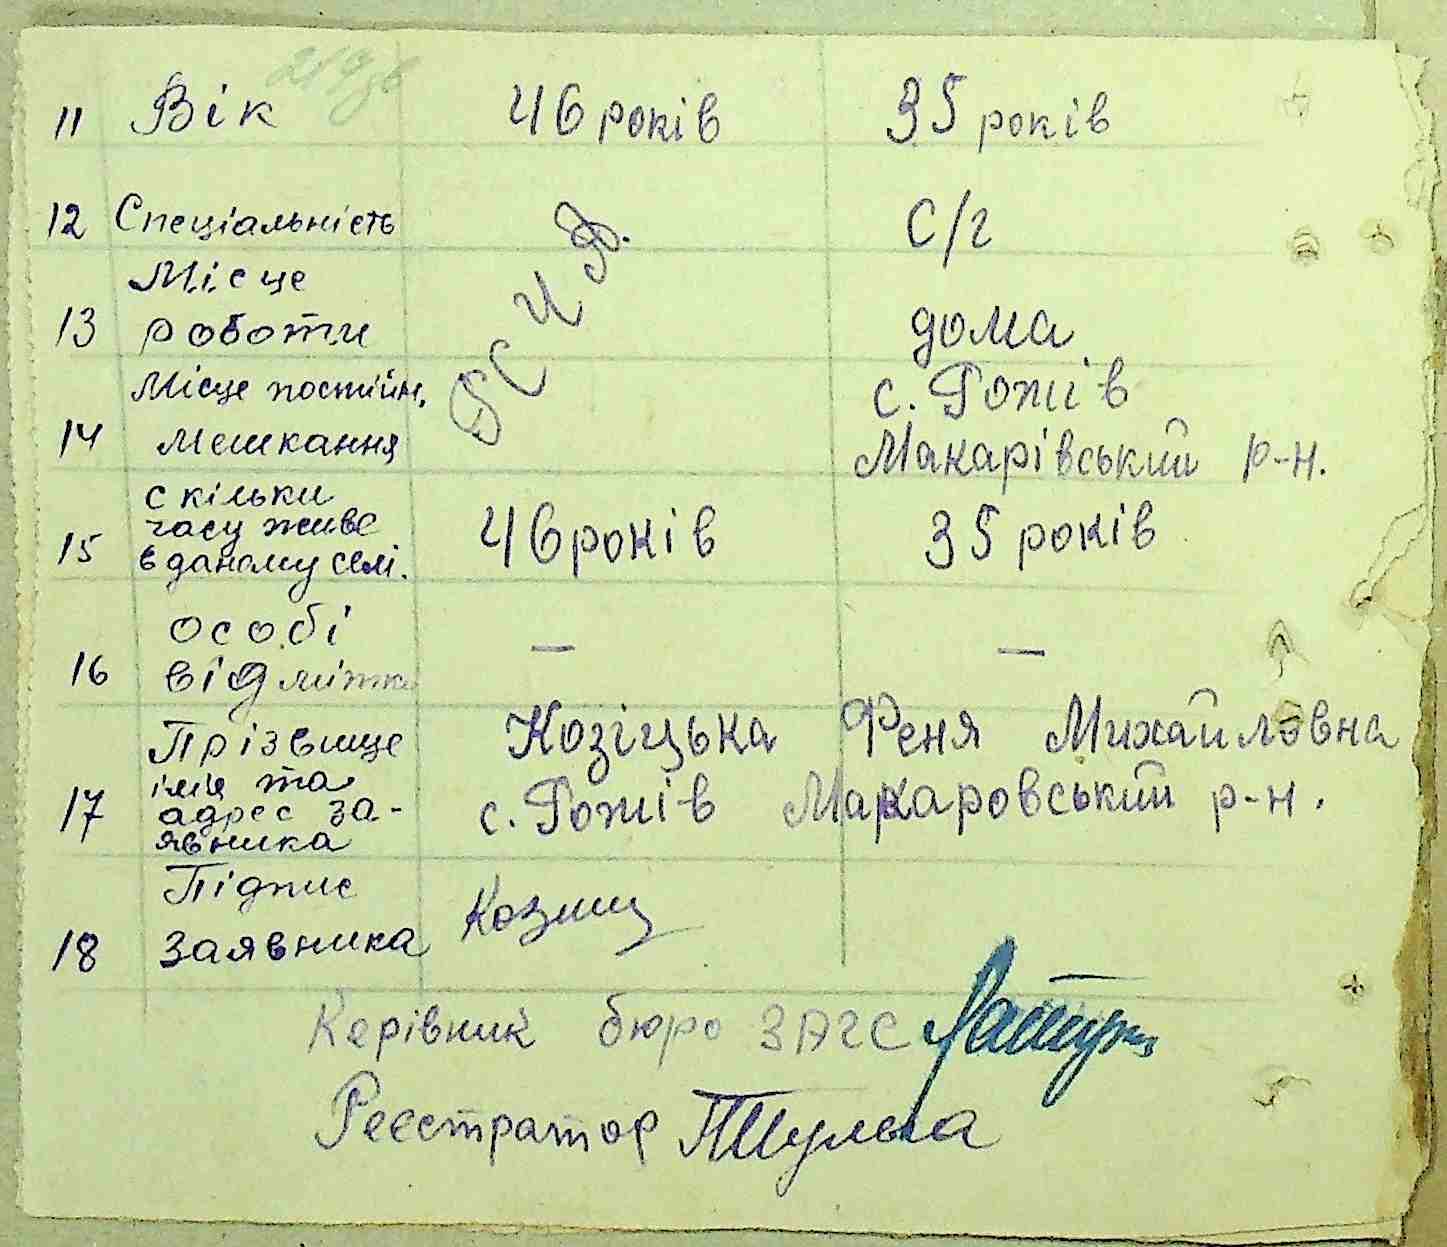 11 Вік 46 років 35 років
12 Спеціальність С/г
Місце
13 роботи дома
Місце постійн. с. Рожів
14 мешкання Макарівський р-н.
скільки
часу живе
15 в даному селі. 46 років 35 років
особі
16 відмітки — —
Прізвище Козіцька Феня Михайловна
ім'я та
17 адрес за- с. Рожів Макаровський р-н.
явника
Підпис
18 заявника Козиц
Керівник бюро ЗАГС
Реєстратор